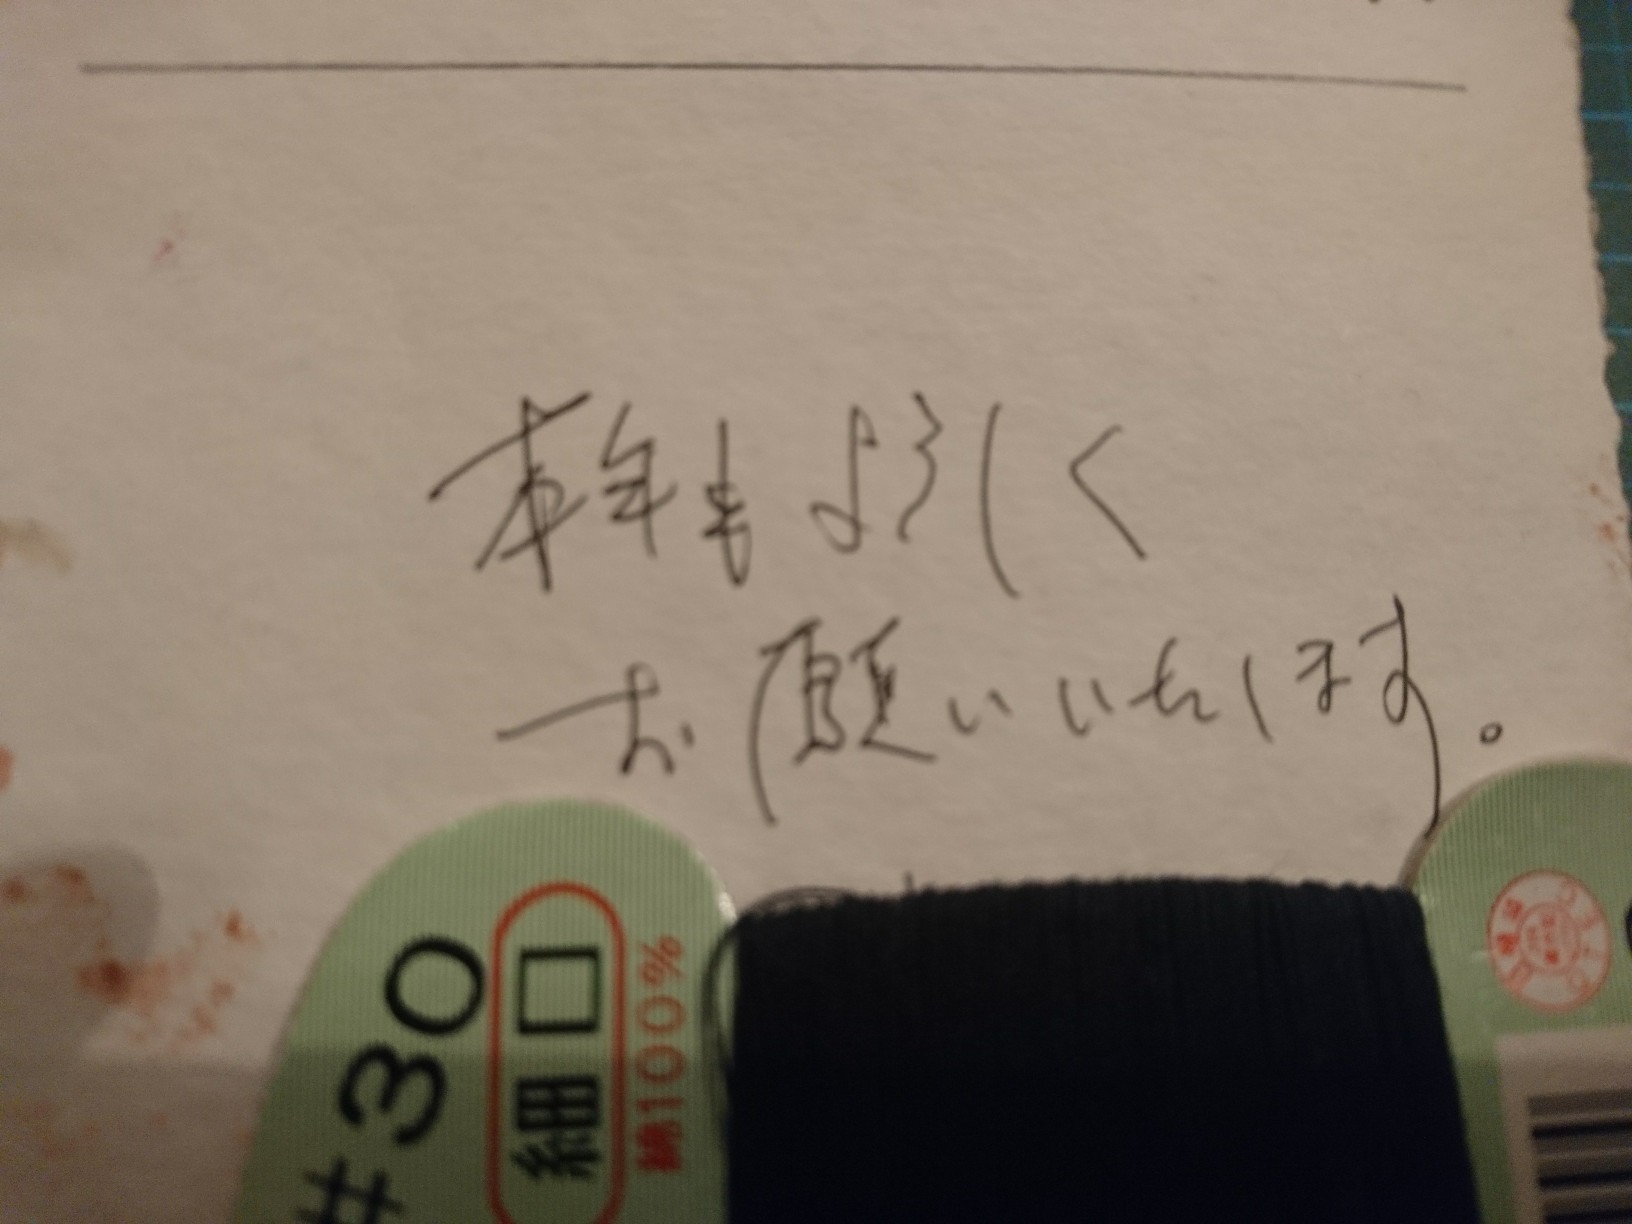 本年もよろしく
お願いいたします。
#30
細口
綿100%